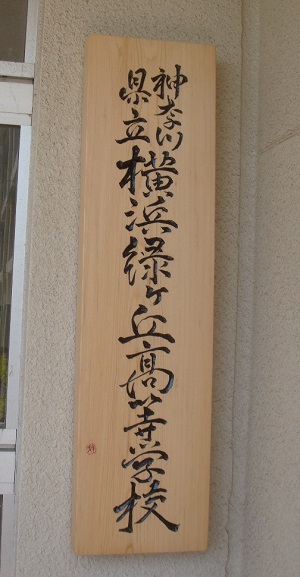 神奈川
県立
横浜緑ヶ丘高等学校